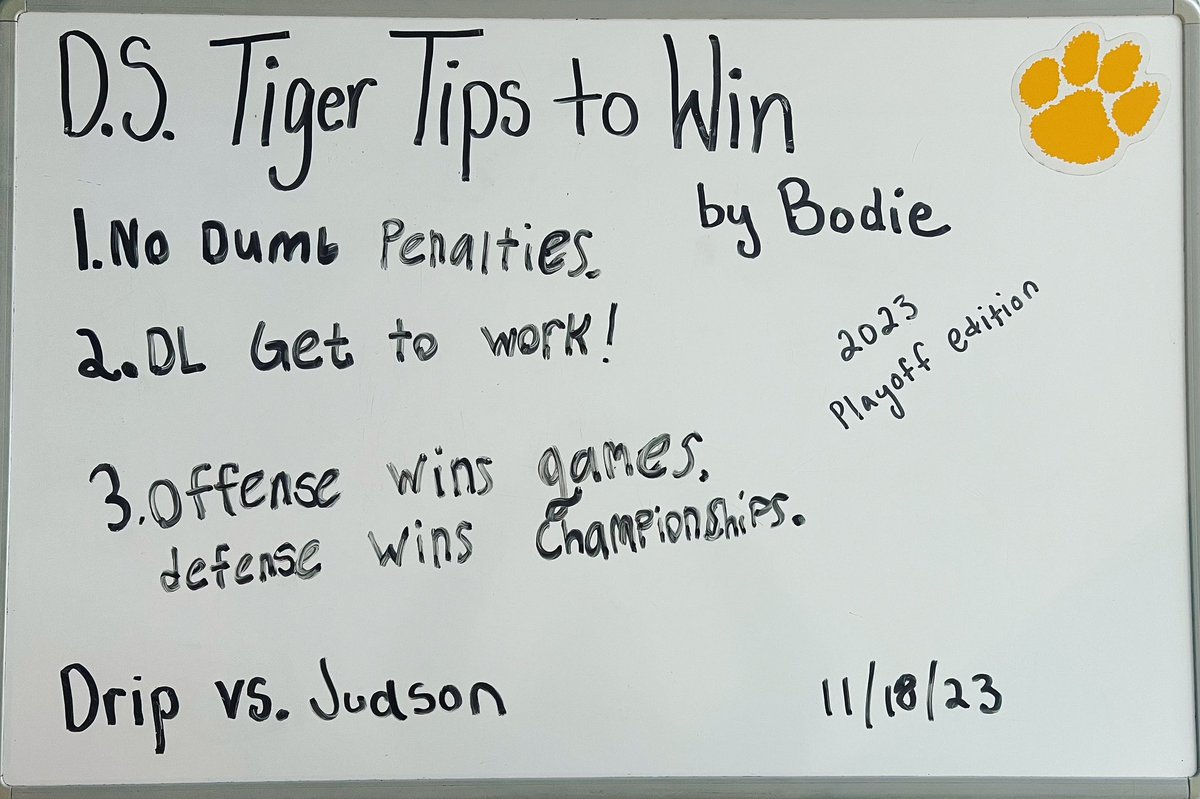 D.S. Tiger Tips to Win
by Bodie
1. No Dumb Penalties.
2. DL Get to work!
2023
Playoff edition
3. Offense wins games.
defense wins Championships.
Drip vs. Judson
11/18/23